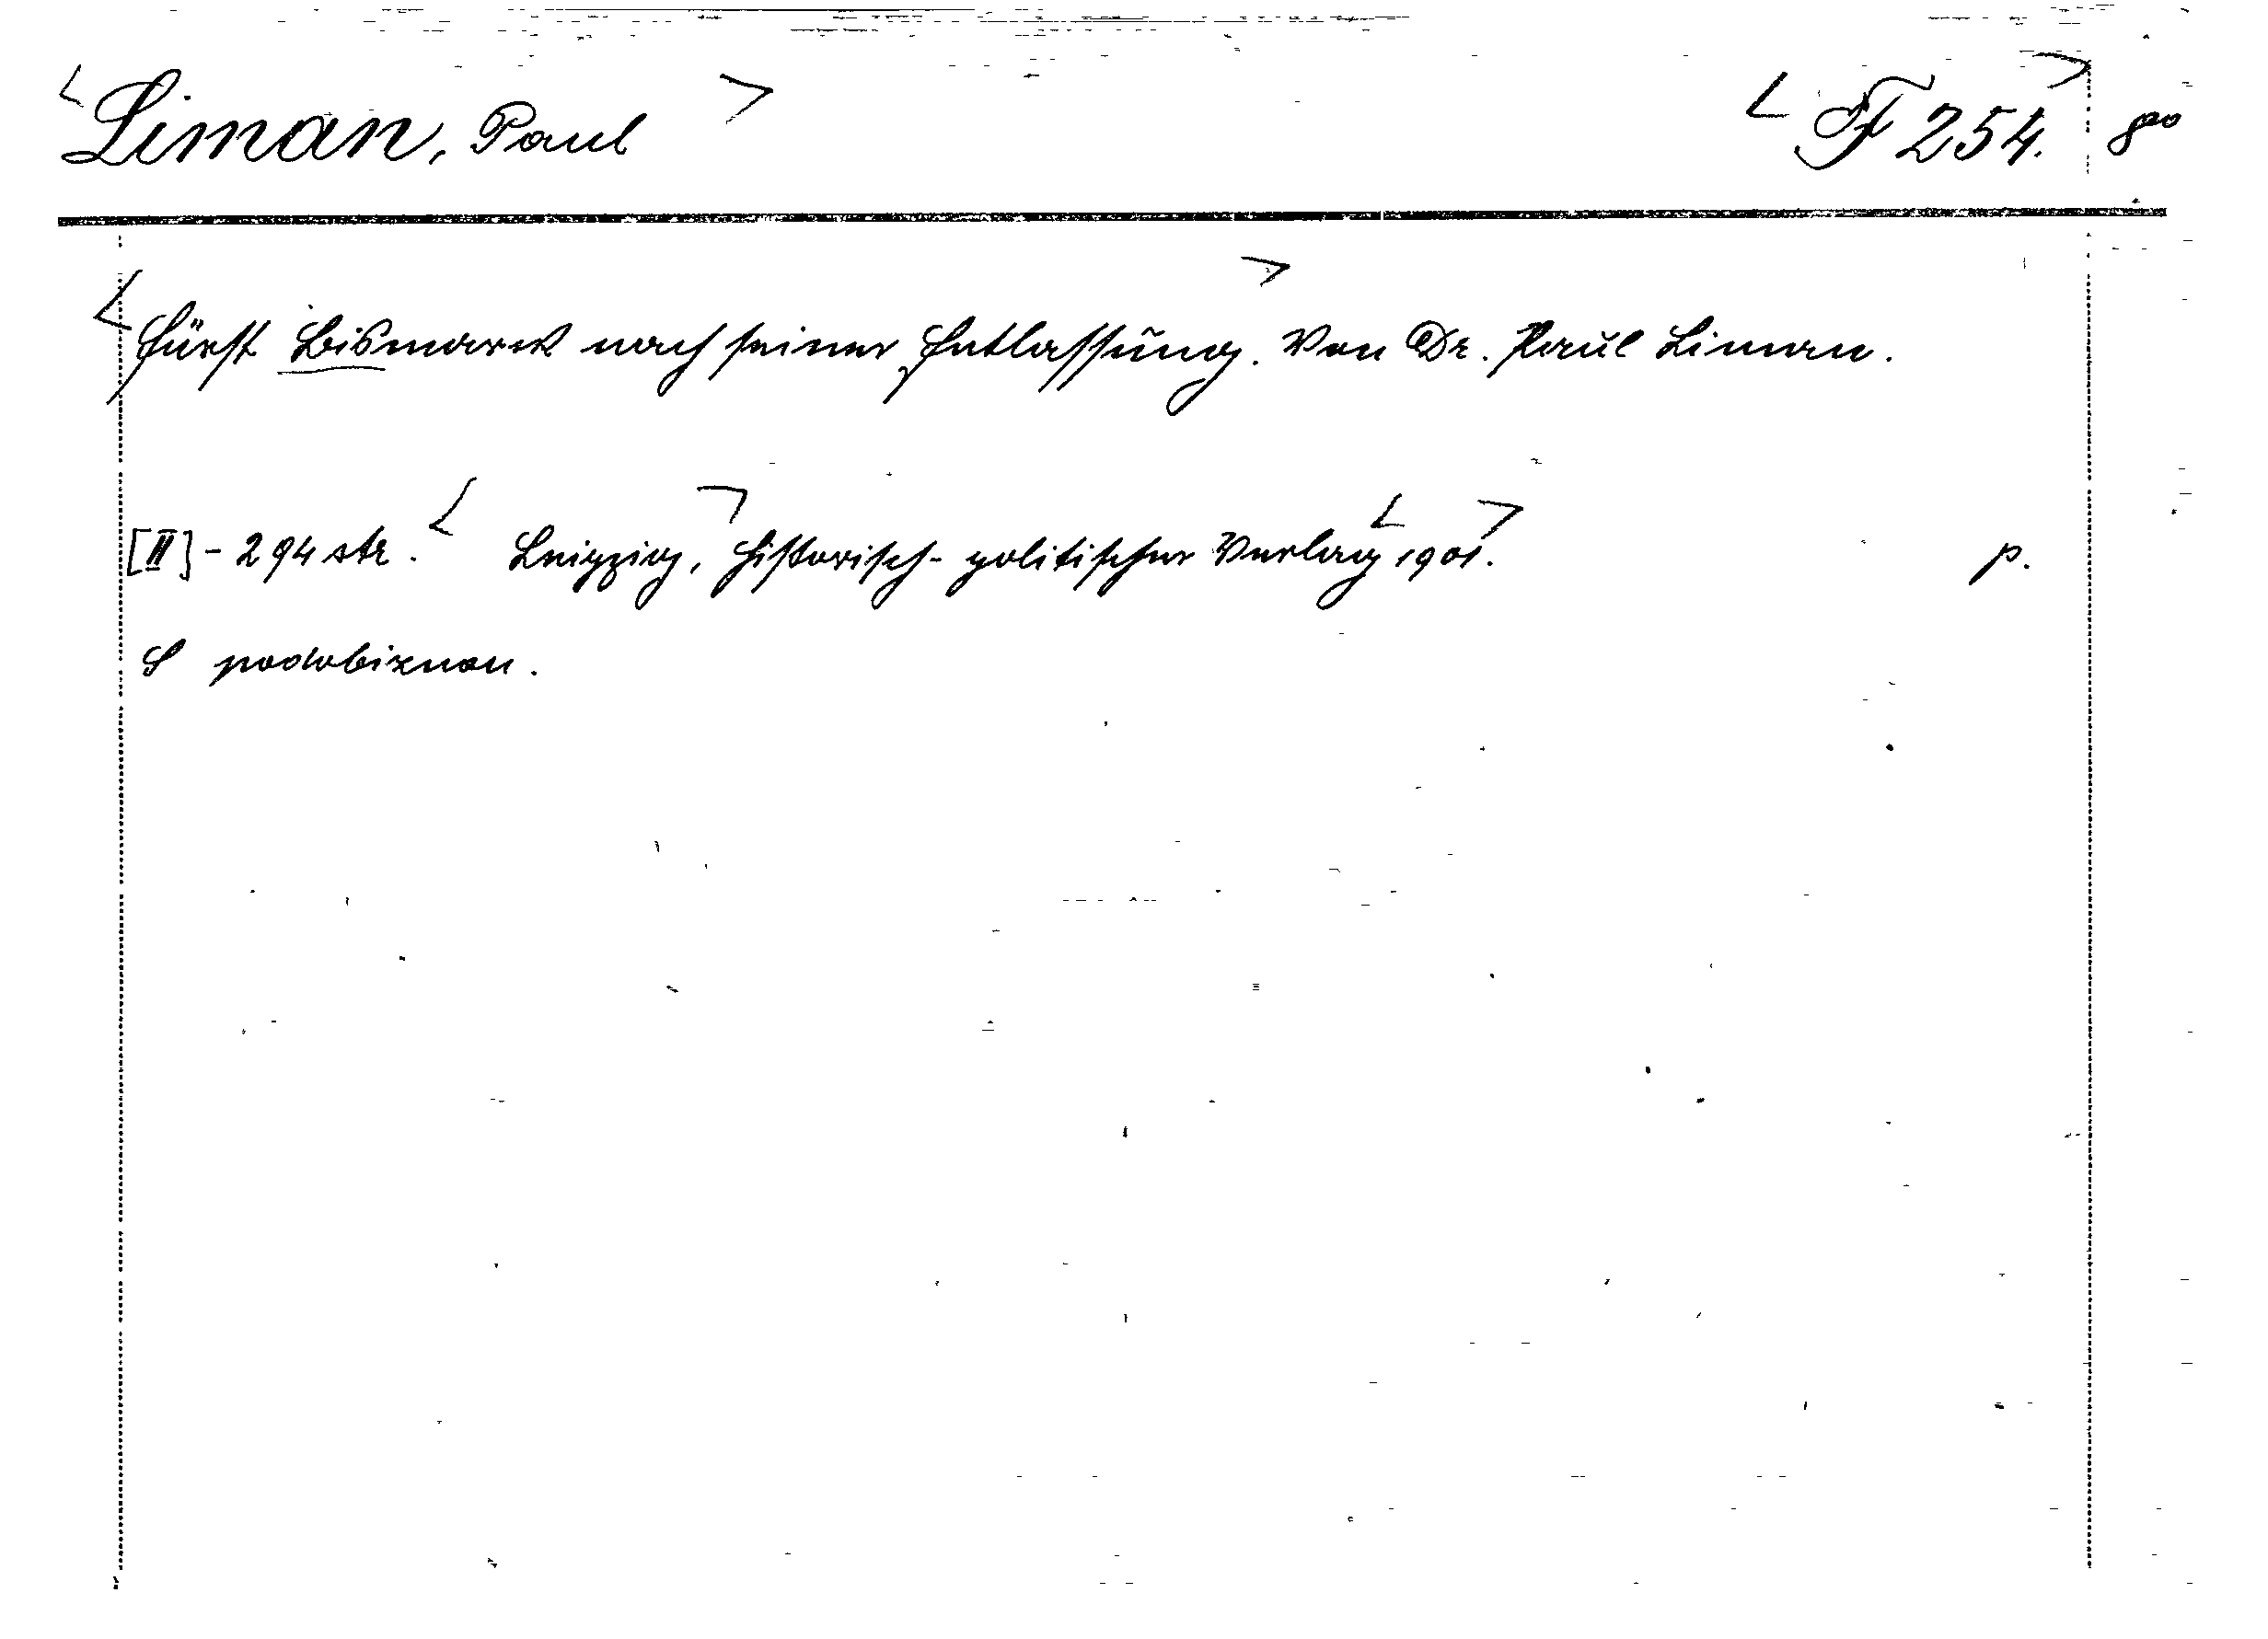 <Liman, Paul> <F 254.> 8⁰
<Fürst Bismarck nach seiner Entlassung.> Von Dr. Paul Liman.
[II] - 294 str. <Leipzig,> historisch-politischer Verlag <1901.> p.
S podobiznou.